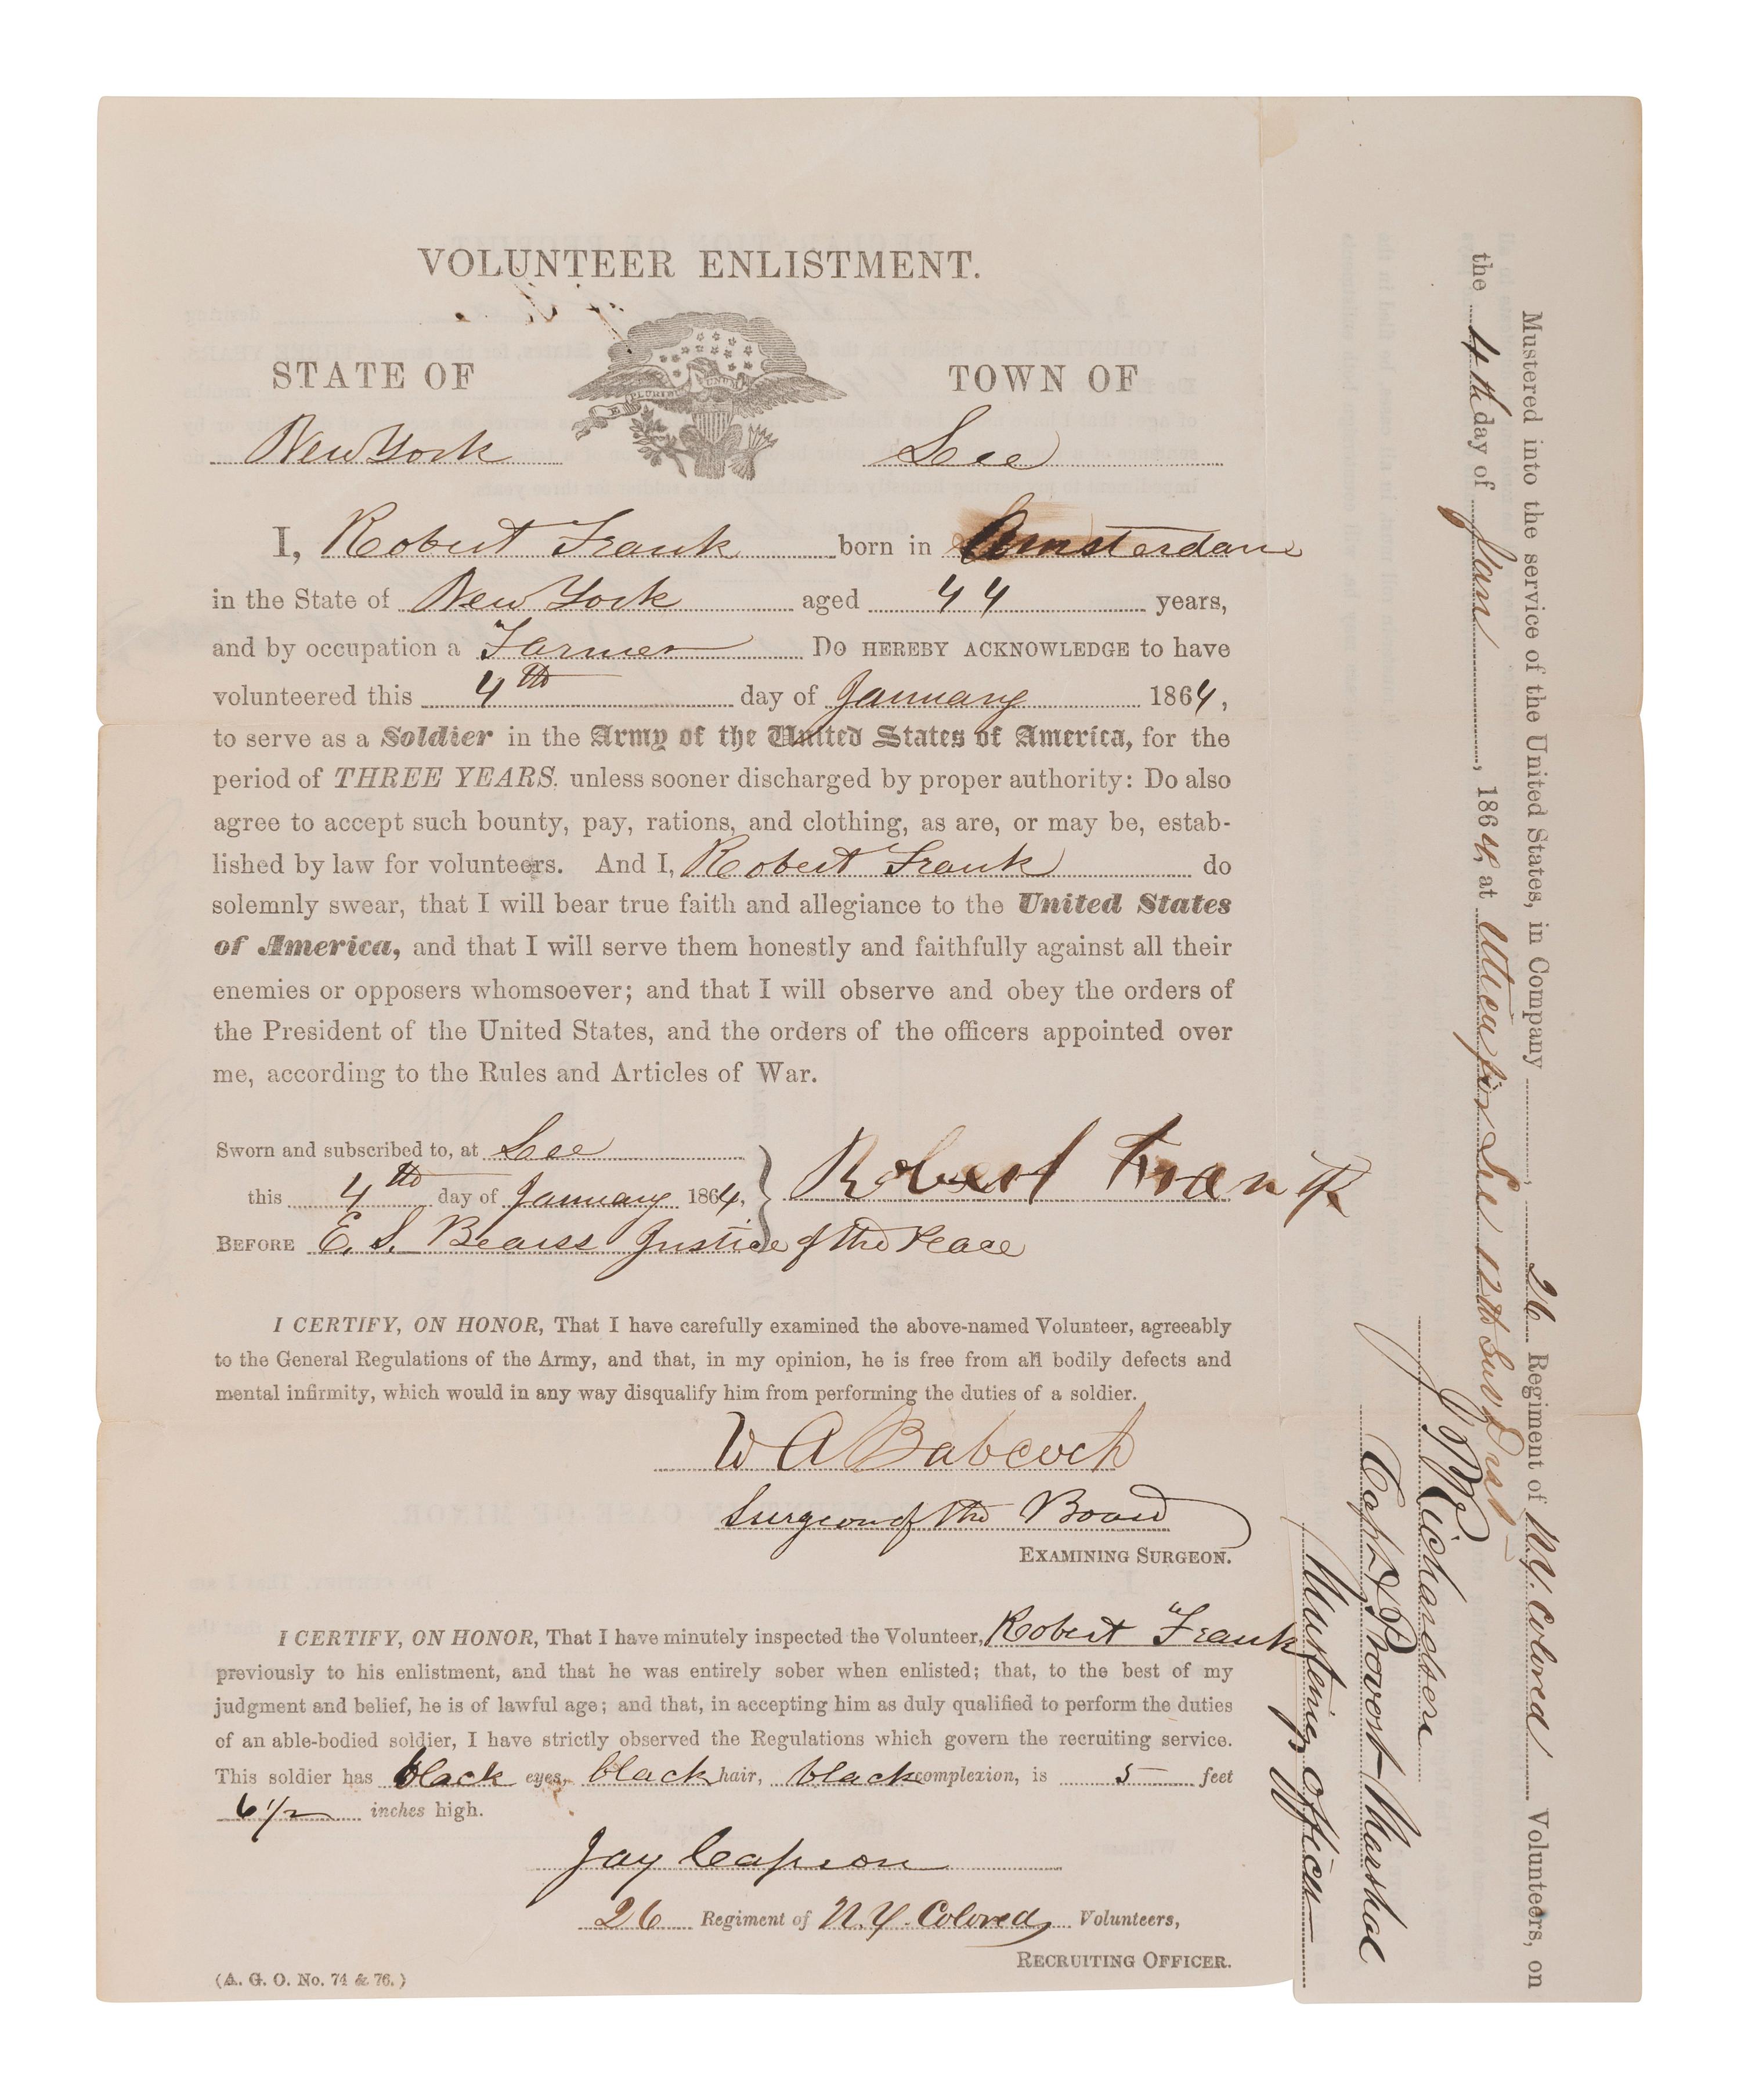 VOLUNTEER ENLISTMENT.
STATE OF TOWN OF
E PLURIBUS UNUM
New York Lee
I, Robert Frank born in Amsterdam
in the State of New York aged 44 years,
and by occupation a Farmer Do HEREBY ACKNOWLEDGE to have
volunteered this 4th day of January 1864,
to serve as a Soldier in the Army of the United States of America, for the
period of THREE YEARS, unless sooner discharged by proper authority: Do also
agree to accept such bounty, pay, rations, and clothing, as are, or may be, estab-
lished by law for volunteers. And I, Robert Frank do
solemnly swear, that I will bear true faith and allegiance to the United States
of America, and that I will serve them honestly and faithfully against all their
enemies or opposers whomsoever; and that I will observe and obey the orders of
the President of the United States, and the orders of the officers appointed over
me, according to the Rules and Articles of War.
Sworn and subscribed to, at Lee
this 4th day of January 1864, Robert Frank
BEFORE E. S. Bearss Justice of the Peace
I CERTIFY, ON HONOR, That I have carefully examined the above-named Volunteer, agreeably
to the General Regulations of the Army, and that, in my opinion, he is free from all bodily defects and
mental infirmity, which would in any way disqualify him from performing the duties of a soldier.
W A Babcock
Surgeon of the Board
EXAMINING SURGEON.
I CERTIFY, ON HONOR, That I have minutely inspected the Volunteer, Robert Frank
previously to his enlistment, and that he was entirely sober when enlisted; that, to the best of my
judgment and belief, he is of lawful age; and that, in accepting him as duly qualified to perform the duties
of an able-bodied soldier, I have strictly observed the Regulations which govern the recruiting service.
This soldier has black eyes, black hair, black complexion, is 5 feet
6 1/2 inches high.
Jay Capron
26 Regiment of N.Y. Colored Volunteers,
RECRUITING OFFICER.
(A. G. O. No. 74 & 76.)
Mustered into the service of the United States, in Company , 26 Regiment of N.Y. Colored Volunteers, on
the 4th day of Jan , 1864, at Utica for Lee 12th Sub Dist
J P Richardson
Capt & Provost Marshal
Mustering Officer